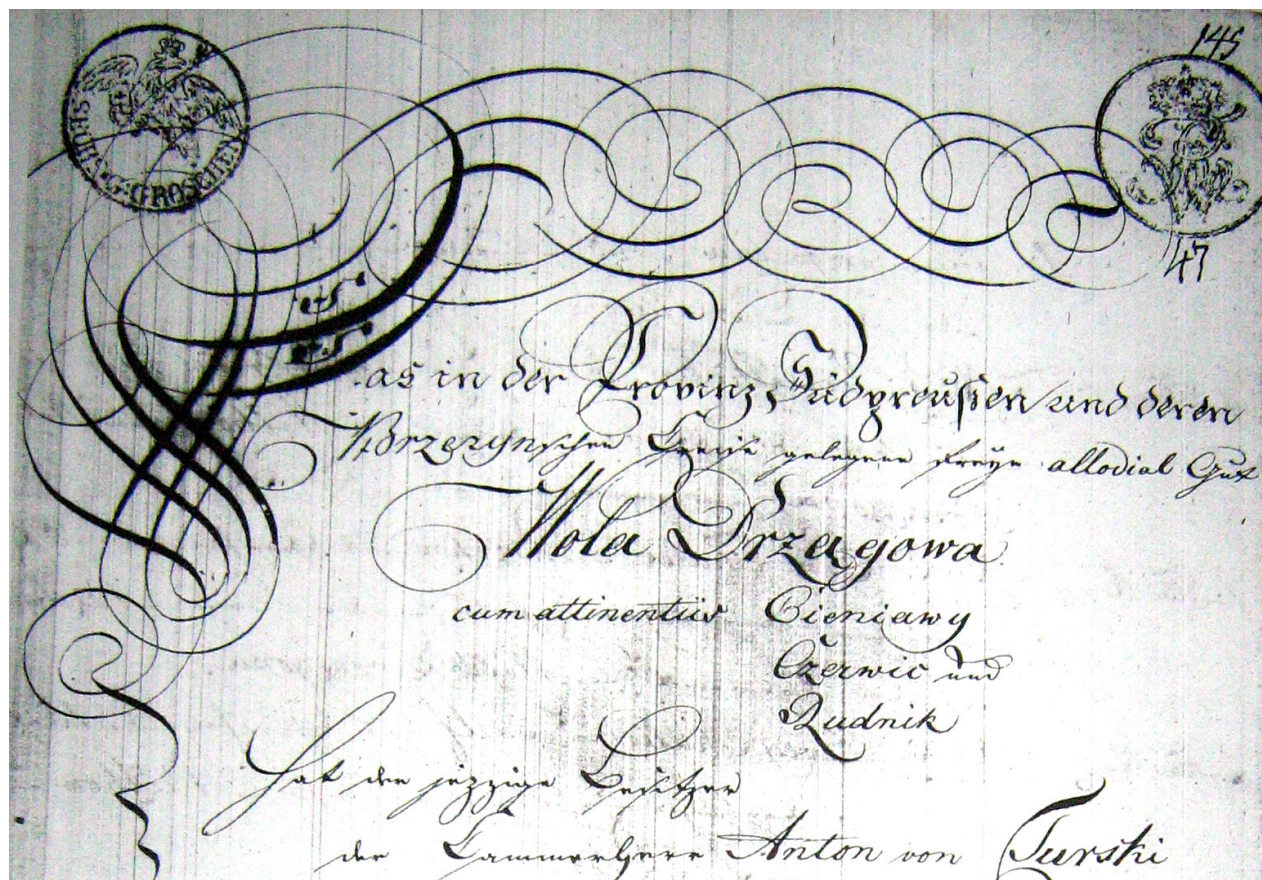 145
SECHS G:GROSCHEN
47
as in der Provinz Südpreußen und deren
Brzezynschen Creise gelegene freye allodial Gut
Wola Drzazgowa
cum attinentiis Cieniawy
Czerwic und
Rudnik
hat der jezzige Besitzer
der Cammerherr Anton von Turski